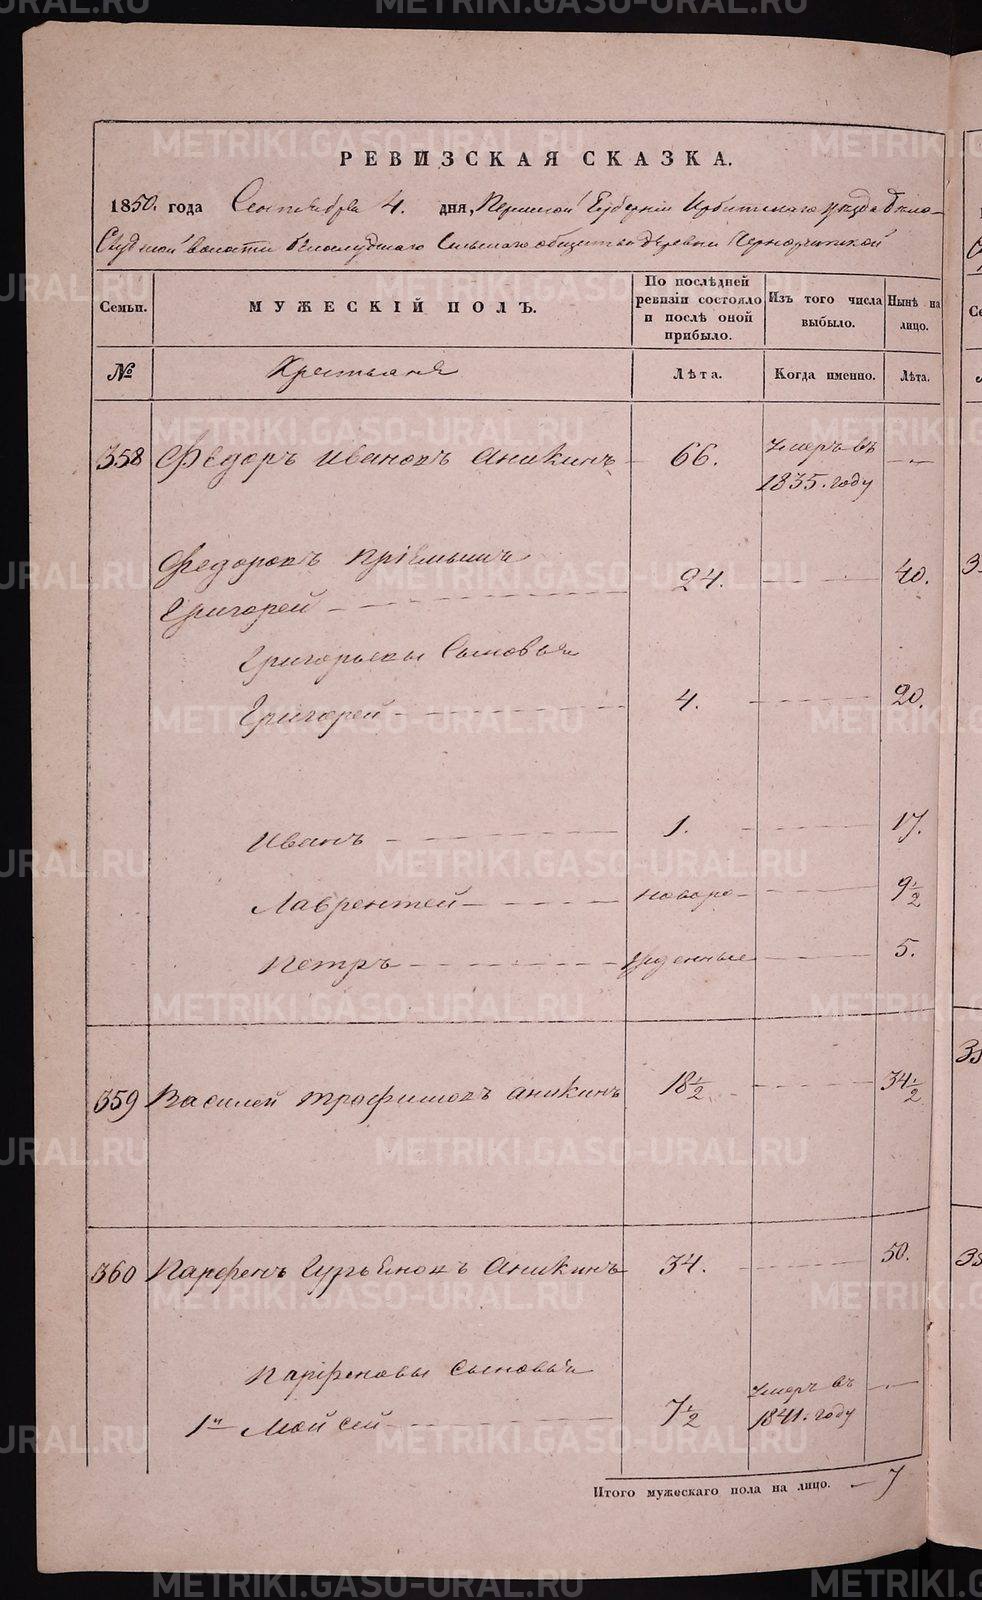 METRIKI.GASO-URAL.RU
РЕВИЗСКАЯ СКАЗКА.
1850. года Сентября 4. дня, Пермской Губернии Ирбитскаго уезда Бело-
Слудской волости Белослудскаго Сельскаго общества деревни
Семьи. МУЖЕСКІЙ ПОЛЪ. По послѣдней ревизіи состояло и послѣ оной прибыло. Изъ того числа выбыло. Нынѣ на лицо.
№ Крестьяня Лѣта. Когда именно. Лѣта.
358 Федоръ Ивановъ Аникинъ 66. Умеръ въ 1835. году —
Федоровъ Пріемышъ
Григорей 24. 40.
Григорьевы Сыновья
Григорей 4. 20.
Иванъ 1. 17.
Лаврентей новоро- 9 1/2
Петръ жденные 5.
359 Василей Трофимовъ Аникинъ 18 1/2 34 1/2
360 Парфенъ Гурьяновъ Аникинъ 34. 50.
Парфеновы Сыновья
1й Мойсей 7 1/2 Умеръ въ 1841. году —
Итого мужескаго пола на лицо. — 7